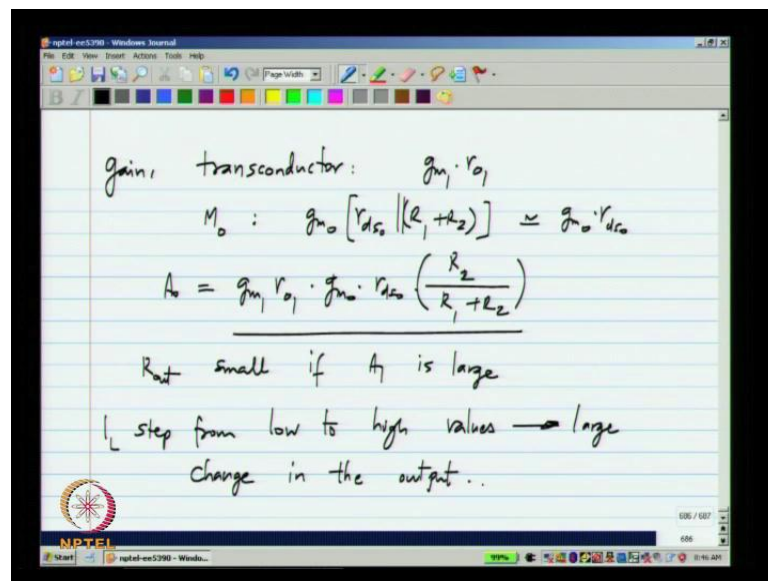 nptel-ee5390 - Windows Journal
File Edit View Insert Actions Tools Help
Page Width
B I
gain, transconductor: gm1 · ro1
M0 : gm0 [rds0 || (R1 + R2)] ≃ gm0 · rds0
A0 = gm1 ro1 · gm0 · rds0 (R2 / (R1 + R2))
Rout small if A is large
IL step from low to high values → large
change in the output ..
686 / 687
686
NPTEL
Start nptel-ee5390 - Windo...
99% 8:46 AM